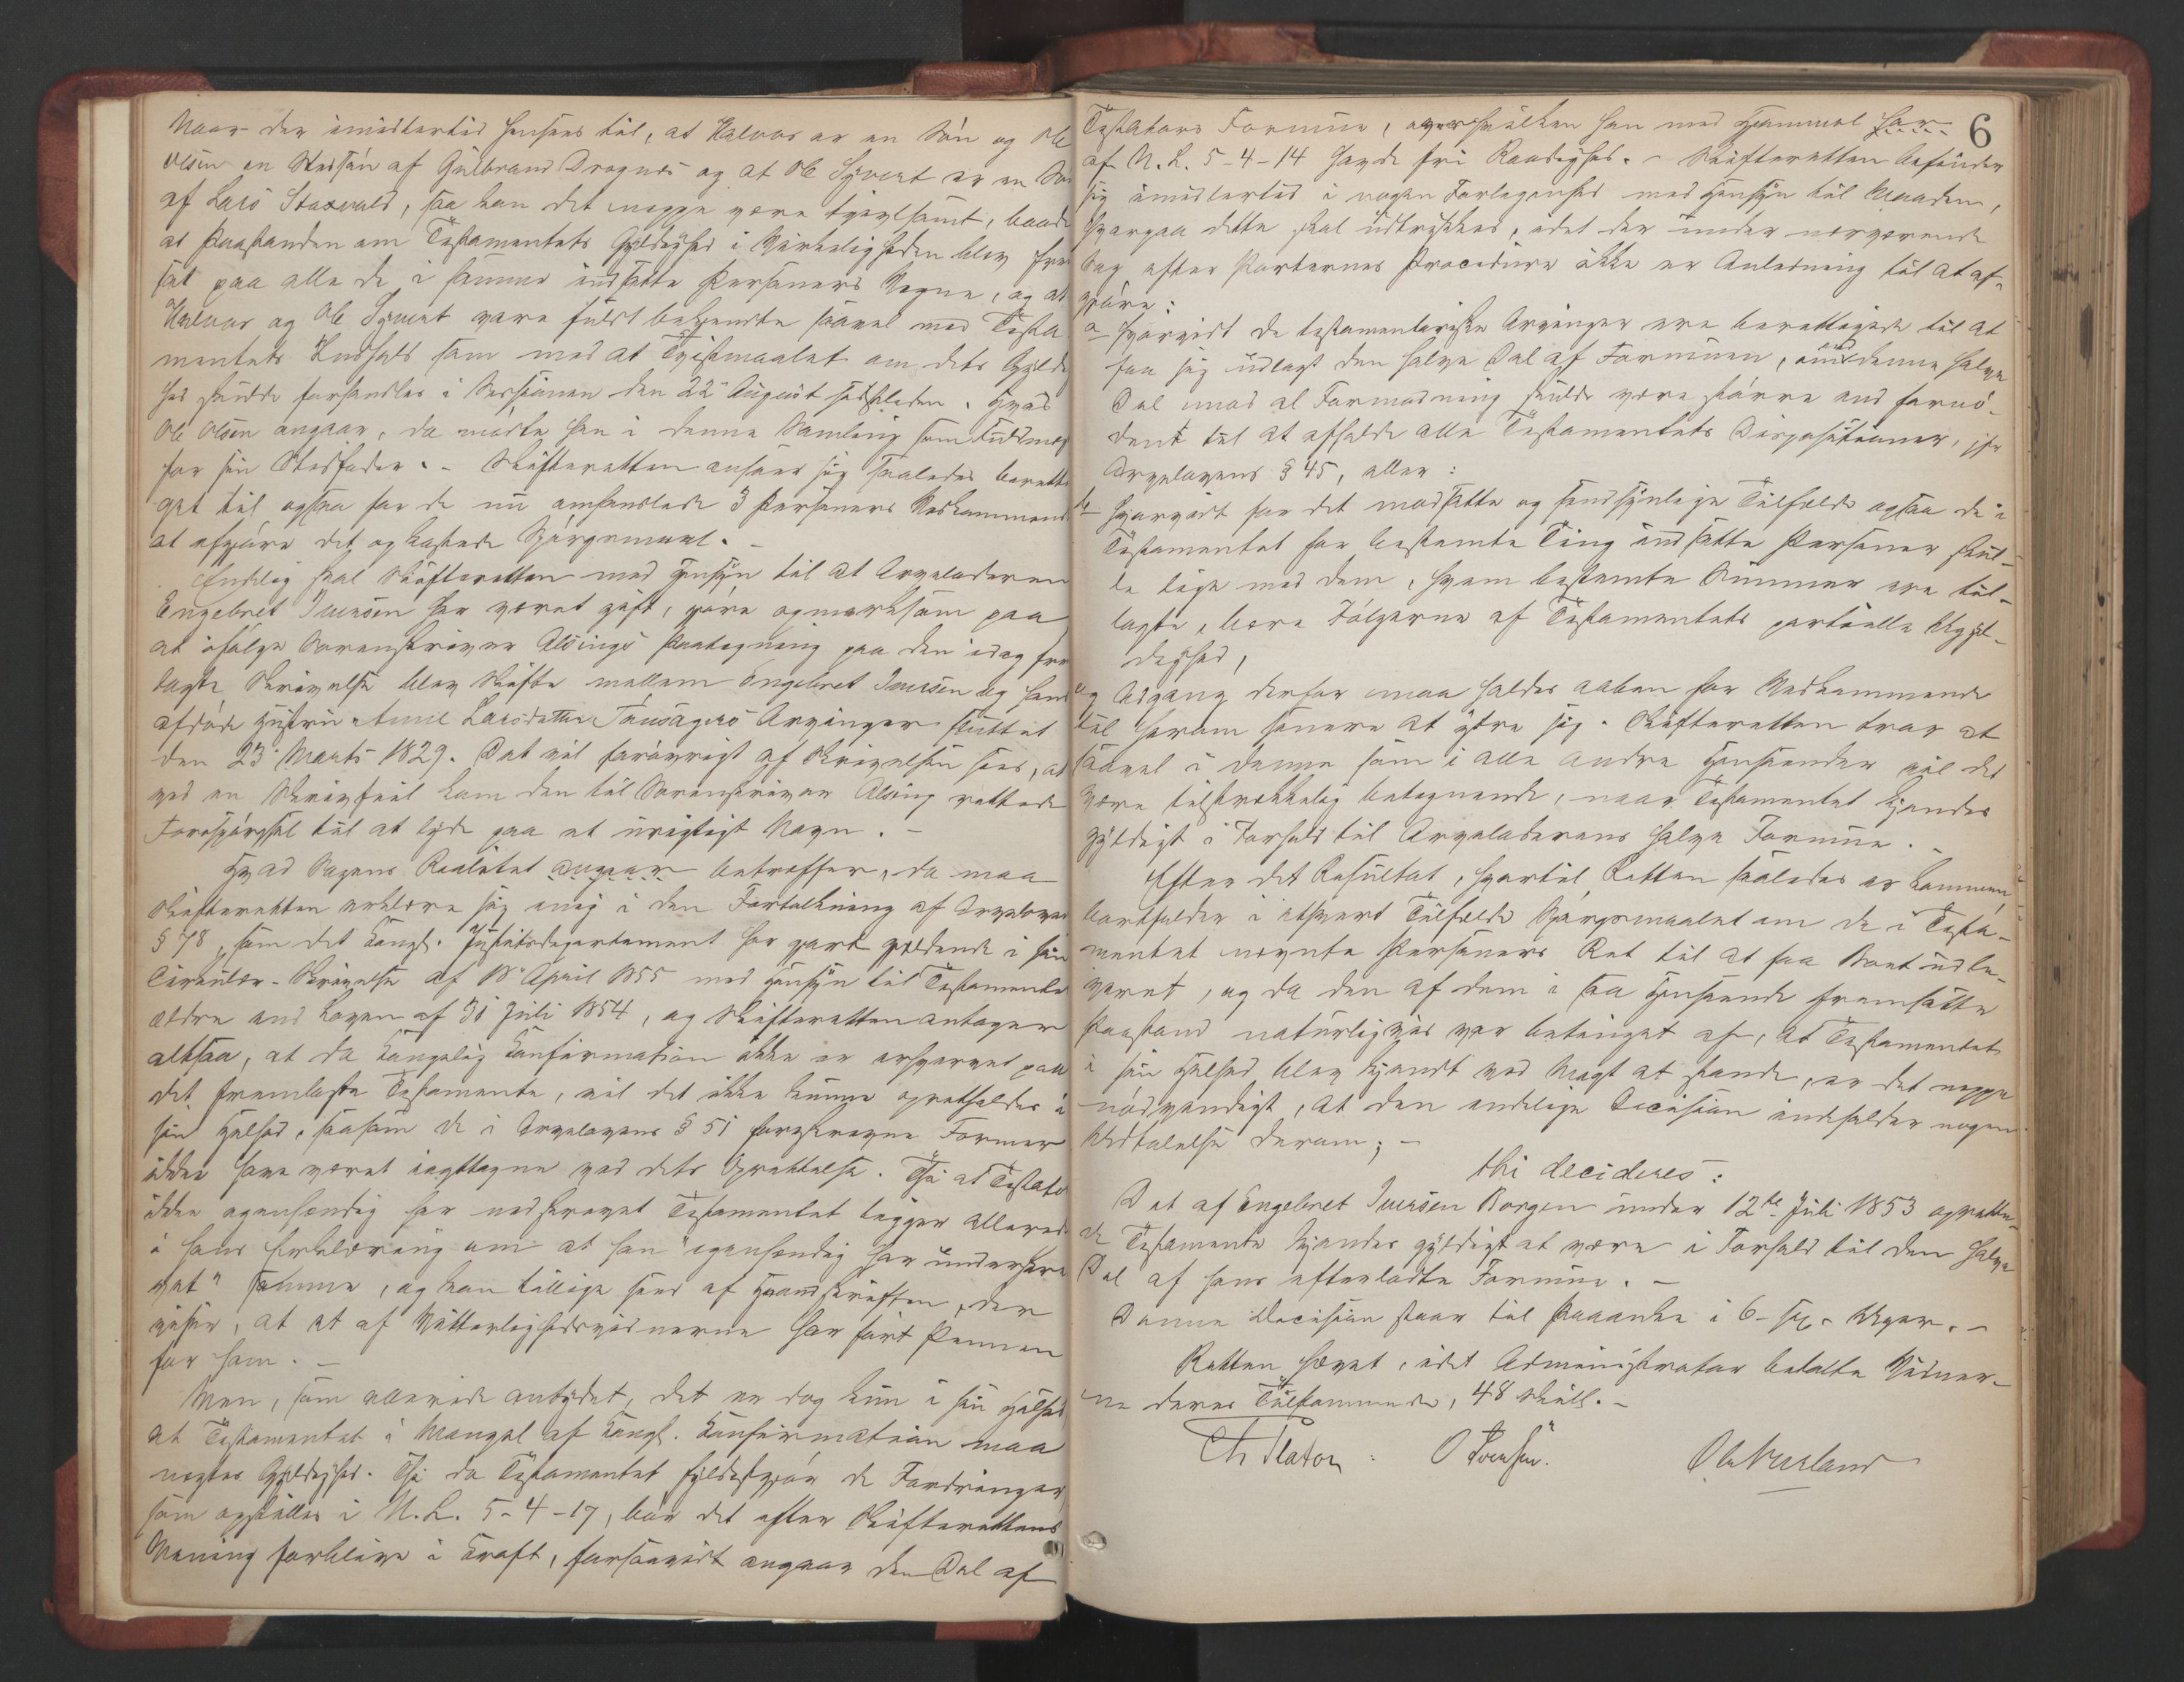 Naar der imidlertid hensees til, at Halvor er en Søn og Ole
Olsen en Stedsøn af Gulbrand Drognes og at Ole Syvert er en Søn
af Lars Staxrud, saa kan det neppe være tvivlsomt, baade
at Paastanden om Testamentets Gyldighed i Virkeligheden blev frem
sat paa alle de i samme indsatte Personers Vegne, og at
Halvor og Ole Syvert vare fuldt bekjendte saavel med Testa
mentets Indhold som med at Tvistemaalet om dets Gyldig
hed skulde forhandles i Sessionen den 22 August sidstleden. Hvad
Ole Olsen angaar, da mødte han i denne Samling som Fuldmægtig
for sin Stedfader. - Skifteretten anseer sig saaledes beretti
get til ogsaa for de nu omhandlede 3 Personers Vedkommende
at afgjøre det opkastede Spørgsmaal. -
Endelig skal Skifteretten med Hensyn til at Arveladeren
Engebret Iversen har været gift, gjøre opmærksom paa
at ifølge Sorenskriver Alsings Paategning paa den idag frem
lagte Skrivelse blev Skifte mellem Engebret Iversen og hans
afdøde Hustru Anne Larsdatter Arvinger sluttet
den 23 Marts 1829. Det vil forøvrigt af Skrivelsen sees, at
ved en Skrivfeil kom den til Sorenskriver Alsing rettede
Forespørgsel til at lyde paa et urigtigt Navn. -
Hvad Sagens Realitet angaar betræffer, da maa
Skifteretten erklære sig enig i den Fortolkning af Arvelovens
§ 78, som det Kongl. Justitsdepartement har gjort gjældende i sin
Cirkulær-Skrivelse af 18 April 1855 med Hensyn til Testamenter
ældre end Loven af 31 Juli 1854, og Skifteretten antager
altsaa, at da Kongelig Konfirmation ikke er erhvervet paa
det fremlagte Testamente, vil det ikke kunne opretholdes i
sin Helhed, saasom de i Arvelovens § 51 foreskrevne Former
ikke have været iagttagne ved dets Oprettelse. Thi at Testator
ikke egenhændig har nedskrevet Testamentet ligger allerede
i hans Erklæring om at han "egenhændig har underskre
vet" samme, og kan tillige sees af Haandskriften, der
viser, at et af Vitterlighedsvidnerne har ført Pennen
for ham. -
Men, som allerede antydet, det er dog kun i sin Helhed
at Testamentet i Mangel af Kongl. Konfirmation maa
negtes Gyldighed. Thi da Testamentet fyldestgjør de Fordringer
som opstilles i N. L. 5-4-17, bør det efter Skifterettens
Mening forblive i Kraft, forsaavidt angaar den Del af
6
Testators Formue, over hvilken han med Hjemmel har
af N. L. 5-4-14 havde fri Raadighed. - Skifteretten befinder
sig imidlertid i nogen Forlegenhed med Hensyn til Maaden,
hvorpaa dette skal udtrykkes, idet der under nærværende
Sag efter Parternes Procedure ikke er Anledning til at af-
gjøre:
a- hvorvidt de testamentariske Arvinger ere berettigede til at
faa sig udlagt den halve Del af Formuen, om end denne halve
Del imod al Formodning skulde være større end fornø-
dent til at afholde alle Testamentets Dispositioner, jfr
Arvelovens § 45, eller:
b- hvorvidt for det modsatte og sandsynlige Tilfælde ogsaa de i
Testamentet for bestemte Ting indsatte Personer skul-
le lige med dem, hvem bestemte Summer ere til-
lagte, bære Følgerne af Testamentets partielle Ugyl-
dighed,
og Adgang derfor maa holdes aaben for Vedkommende
til herom senere at ytre sig. Skifteretten tror at
saavel i denne som i alle andre Henseender vil det
være tilstrækkelig betegnende, naar Testamentet kjendes
gyldigt i Forhold til Arveladerens halve Formue. -
Efter det Resultat, hvortil Retten saaledes er kommen,
bortfalder i ethvert Tilfælde Spørgsmaalet om de i Testa-
mentet nævnte Personers Ret til at faa Boet udle-
veret, og da den af dem i saa Henseende fremsatte
Paastand naturligvis var betinget af, at Testamentet
i sin Helhed blev kjendt ved Magt at stande, er det neppe
nødvendigt, at den endelige Decision indeholder nogen
Udtalelse derom; -
thi decideres:
Det af Engebret Iversen Borgen under 12te Juli 1853 oprette-
de Testamente kjendes gyldigt at være i Forhold til den halve
Del af hans efterladte Formue. -
Denne Decision staar til Paaanke i 6 - sex - Uger. -
Retten hævet, idet Administrator betalte Vidner-
ne deres Tilkommende, 48 Skill. -
Th Platou. O Iversen. Ole Næsland